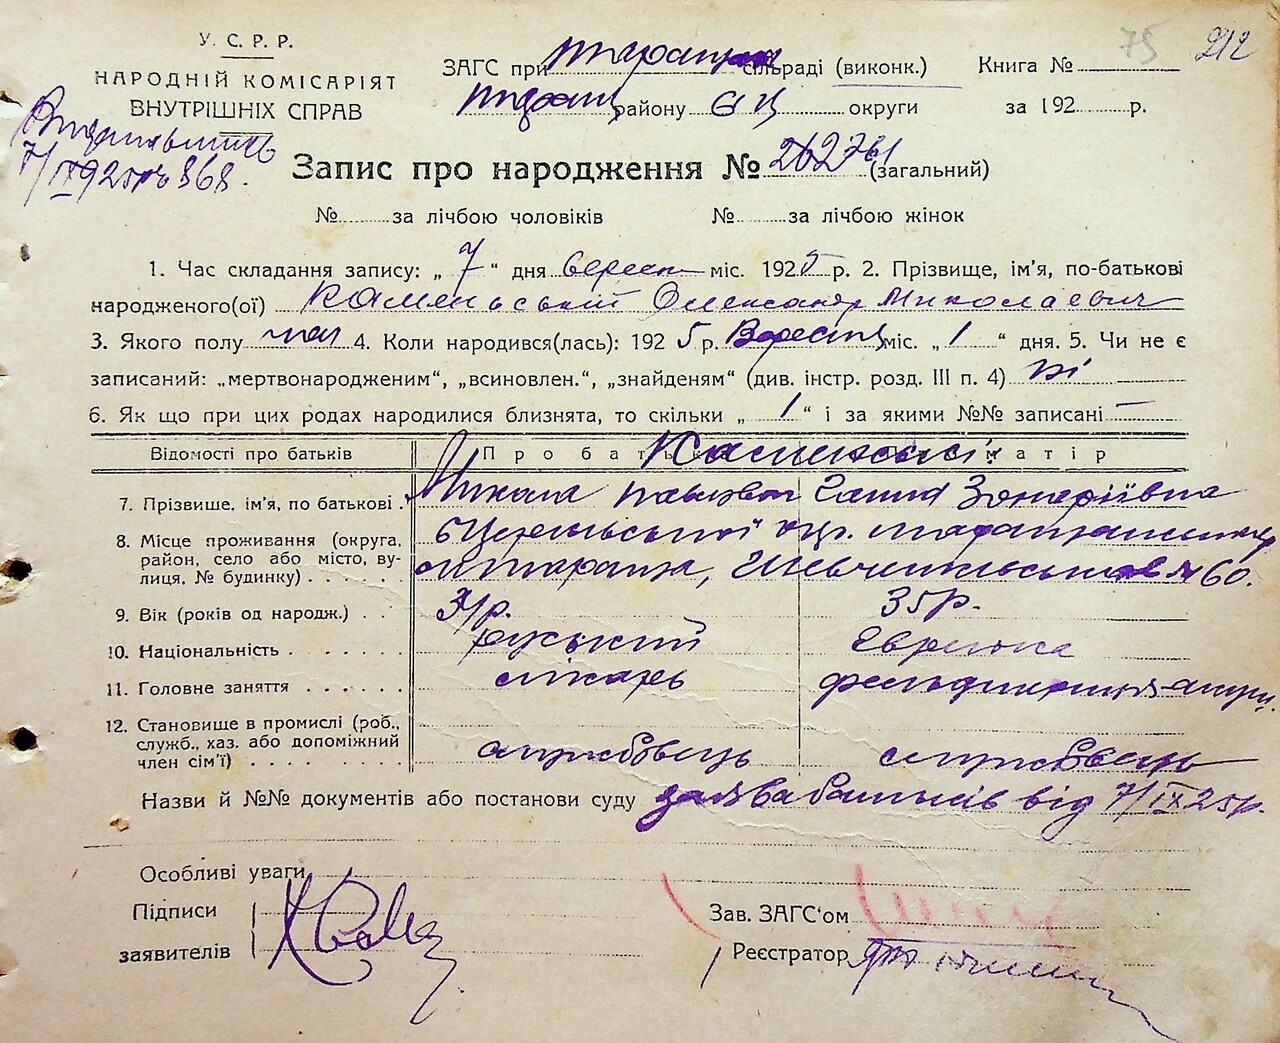 У. С. Р. Р.
НАРОДНІЙ КОМІСАРІЯТ
ВНУТРІШНІХ СПРАВ
75 212
ЗАГС при сільраді (виконк.) Книга №
району БЦ округи за 192 р.
7/IX 925р № 868.
Запис про народження № 262 761 (загальний)
№ за лічбою чоловіків № за лічбою жінок
1. Час складання запису: „ 7 “ дня вересн міс. 1925 р. 2. Прізвище, ім’я, по-батькові
народженого(ої) Каменьський Олександр Миколаевич
3. Якого полу чол 4. Коли народився(лась): 192 5 р. Вересня міс. „ 1 “ дня. 5. Чи не є
записаний: „мертвонародженим“, „всиновлен.“, „знайденям“ (див. інстр. розд. III п. 4) ні
6. Як що при цих родах народилися близнята, то скільки „ 1 “ і за якими №№ записані —
Відомості про батьків Про батька матір
7. Прізвище, ім’я, по батькові Микола Ганна
8. Місце проживання (округа, район, село або місто, вулиця, № будинку) м Тараща, № 60.
9. Вік (років од народж.) 35р.
10. Національність руський Еврейка
11. Головне заняття лікарь
12. Становище в промислі (роб., служб., хаз. або допоміжний член сім’ї) службовець службовець
Назви й №№ документів або постанови суду заява батьків від 7/IX 25р.
Особливі уваги
Підписи
заявителів
Зав. ЗАГС‘ом
Реєстратор